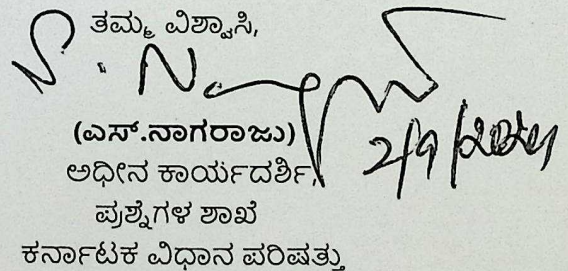 ತಮ್ಮ ವಿಶ್ವಾಸಿ,
(ಎಸ್.ನಾಗರಾಜು)
ಅಧೀನ ಕಾರ್ಯದರ್ಶಿ,
ಪ್ರಶ್ನೆಗಳ ಶಾಖೆ
ಕರ್ನಾಟಕ ವಿಧಾನ ಪರಿಷತ್ತು